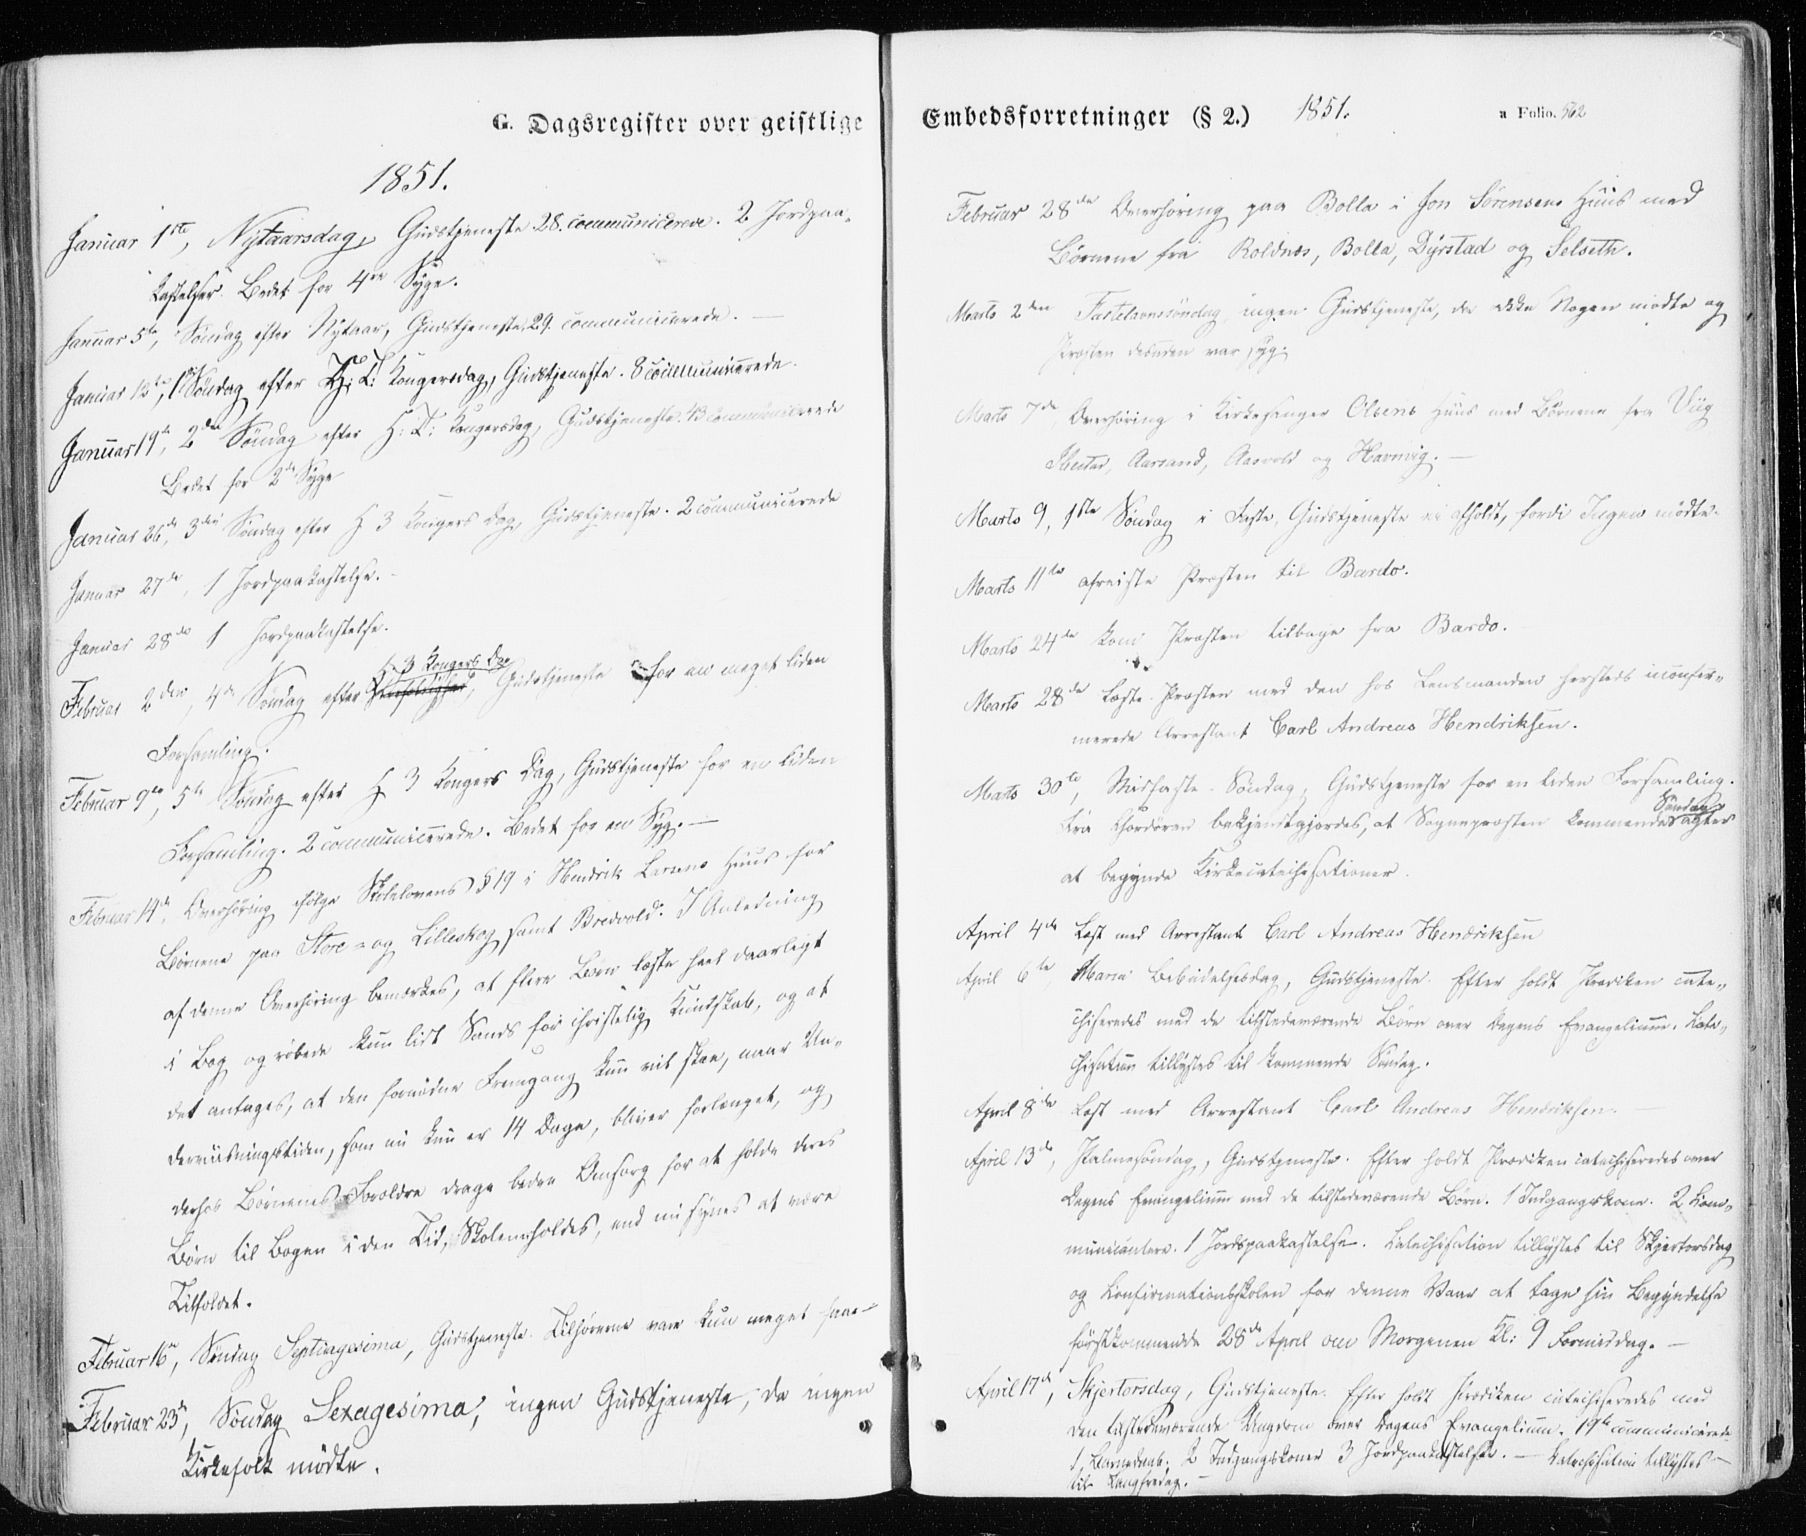 G. Dagsregister over geistlige
1851.
Januar 1ste, Nytaarsdag, Gudstjeneste 28. communicerede. 2 Jordpaa-
kastelser. Bedet for 4re Syge.
Januar 5te, Søndag efter Nytaar, Gudstjeneste 29. communicerede. —
Januar 12te, 1ste Søndag efter H: 3: Kongersdag, Gudstjeneste. 8 communicerede.
Januar 19de, 2den Søndag efter H: 3: Kongersdag, Gudstjeneste. 13 communicerede
Bedet for 2de Syge
Januar 26de, 3die Søndag efter H 3 Kongers dag, Gudstjeneste. 2 communicerede
Januar 27de, 1 Jordpaakastelse. -
Januar 28de 1 Jordpaakastelse.
H. 3 Kongers Dag
Februar 2den, 4de Søndag efter Gudstjeneste for en meget liden
Forsamling.
Februar 9de, 5te Søndag efter H 3 Kongers Dag, Gudstjeneste for en liden
Forsamling. 2 communicerede. Bedet for en Syg. —
Februar 14de, Overhøring ifølge Skolelovens § 19 i Hendrik Larsens Huus for
Børnene paa Store- og Lilleskog samt Bredvold. I Anledning
af denne Overhøring bemærkes, at flere Børn læste heel daarligt
i Bog og røbede kun lidt Sands for christelig Kundskab, og at
det antages, at den fornødne Fremgang kun vil skee, naar Un-
derviisningstiden, som nu kun er 14 Dage, bliver forlænget, og
derhos Børnenes Forældre drage bedre Omsorg for at holde deres
Børn til Bogen i den Tid, Skolen holdes, end nu synes at være
Tilfældet.
Februar 16de, Søndag Septuagesima, Gudstjeneste. Tilhørerne vare kun meget faae —
Februar 23de, Søndag Sexagesima, ingen Gudstjeneste, da ingen
Kirkefolk mødte.
Embedsforretninger (§ 2.) 1851. a Folio. 562
Februar 28de Overhøring paa Bolla i Jon Sørensens Huus med
Børnene fra Roldnes, Bolla, Dyrstad og Selseth.
Marts 2den Fastelavnssøndag, ingen Gudstjeneste, da ikke Nogen mødte og
Præsten desuden var syg.
Marts 7de, Overhøring i Kirkesanger Olsens Huus med Børnene fra Viig
Ibestad, Aarsand, Aasvold og Havnvig. —
Marts 9, 1ste Søndag i Faste, Gudstjeneste ei afholdt, fordi Ingen mødte.
Marts 11te afreiste Præsten til Bardo.
Marts 24de kom Præsten tilbage fra Bardo.
Marts 28de læste Præsten med den hos Lensmanden hersteds inconfir-
merede Arrestant Carl Andreas Hendriksen.
Marts 30te, Midfaste-Søndag, Gudstjeneste for en liden Forsamling.
Søndag
Fra Chordøren bekjendtgjordes, at Sognepræsten kommende agter
at begynde Kirkecatechisationer.
April 4de Læst med Arrestant Carl Andreas Hendriksen
April 6te, Mariæ Bebudelsesdag, Gudstjeneste. Efter holdt Prædiken cate-
chiseredes med de tilstedeværende Børn over Dagens Evangelium. Kate-
chisation tillystes til kommende Søndag.
April 8de Læst med Arrestant Carl Andreas Hendriksen. —
April 13de, Palmesøndag, Gudstjeneste. Efter holdt Prædiken catechiseredes over
Dagens Evangelium med de tilstedeværende Børn. 1 Indgangskone. 2 Kom-
municantere. 1 Jordpaakastelse. Katechisation tillystes til Skjertorsdag
og Konfirmationsskolen for denne Vaar at tage sin Begyndelse
førstkommende 28de April om Morgenen Kl: 9 Formiddag. —
April 17de, Skjertorsdag, Gudstjeneste. Efter holdt Prædiken catechiseredes med
den tilstedeværende Ungdom over Dagens Evangelium. 19 communicerede
1 Barnedaab. 2 Indgangskoner 3 Jordpaakastelser. — Katechisation tillystes
til Langfredag. —